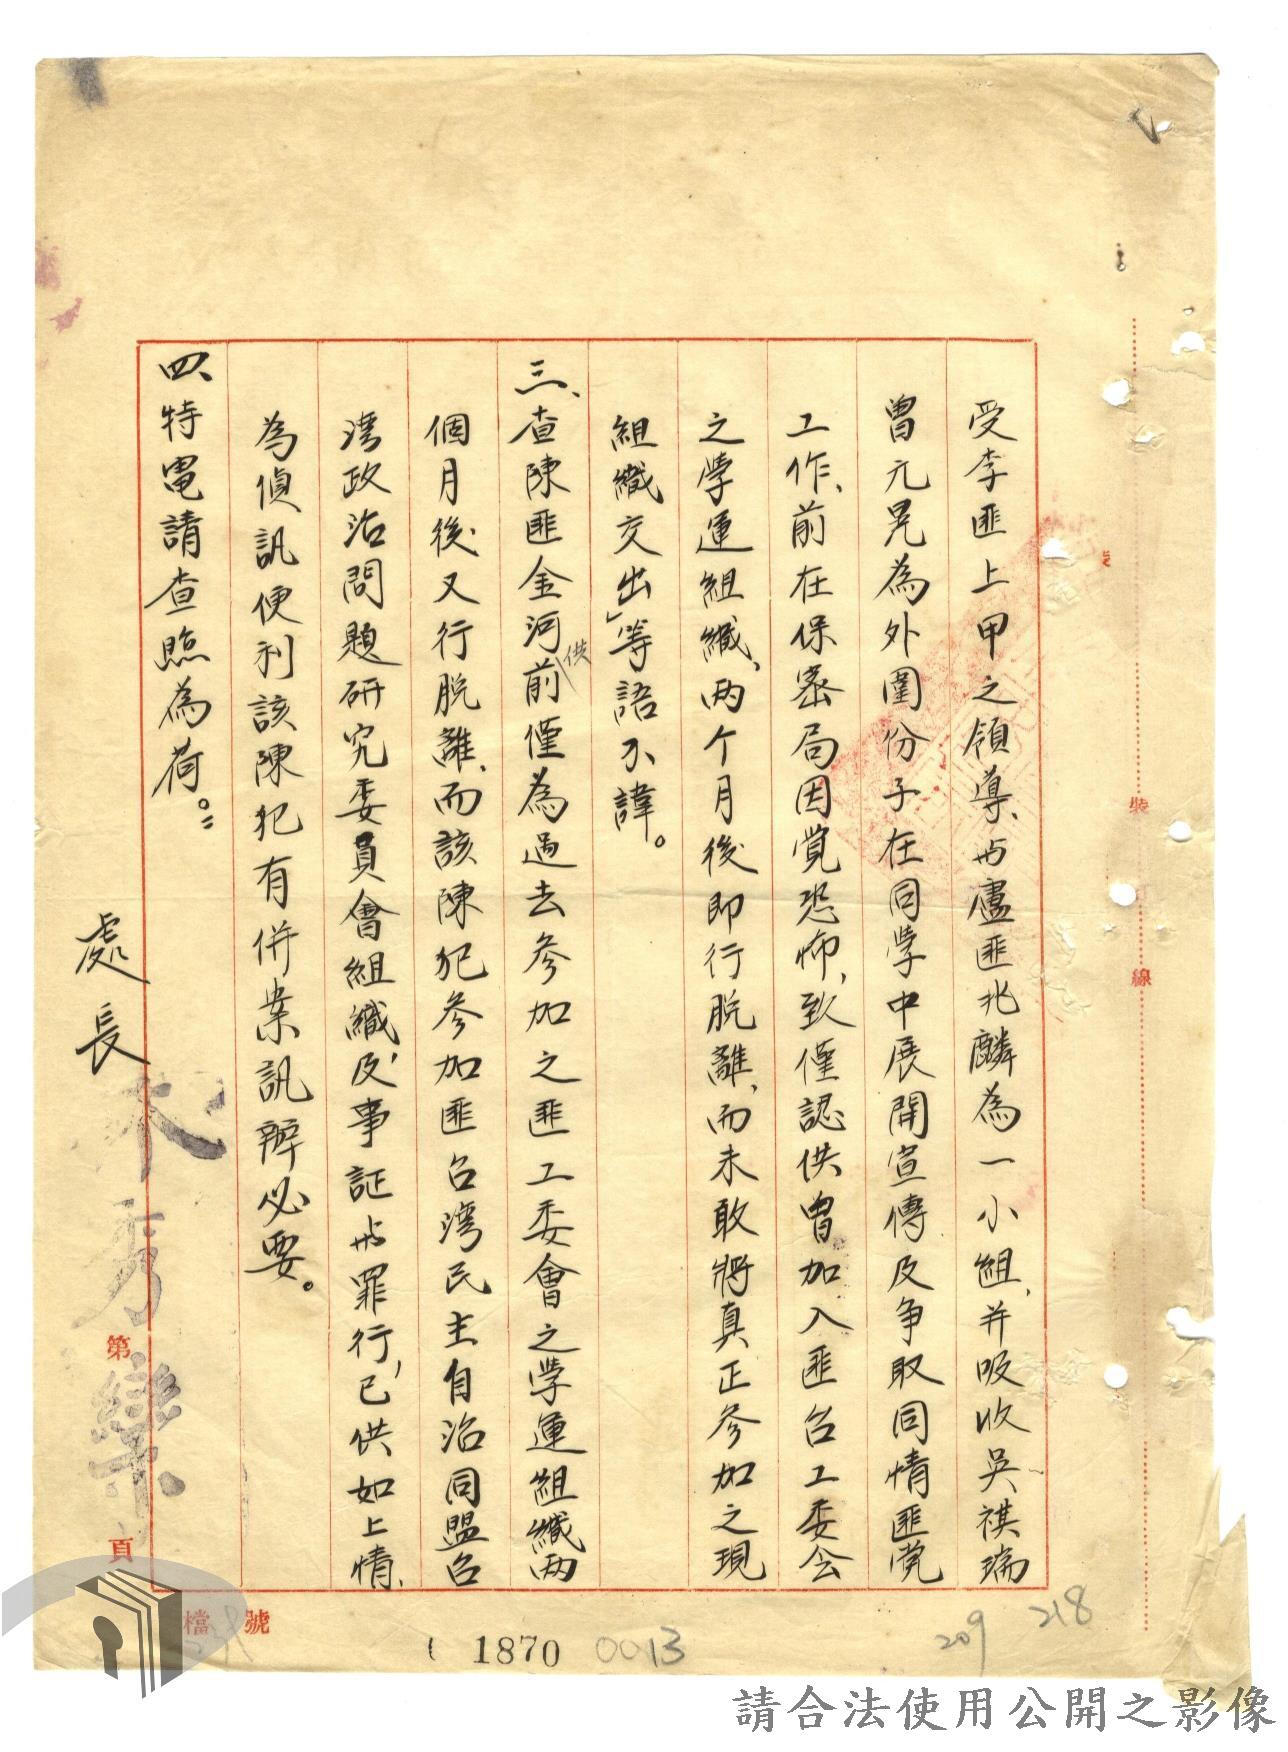 受李匪上甲之領導、与盧匪兆麟為一小組、并吸收吳祺瑞
曾元晃為外圍份子在同学中展開宣傳及争取同情匪党
工作、前在保密局因覚恐怖、致僅認供曾加入匪台工委会
之学運組織、两个月後即行脱離、而未敢將真正参加之現
組織交出」等語不諱。
三、查陳匪金河前供僅為過去参加之匪工委會之学運組織两
個月後又行脱離、而該陳犯参加匪台湾民主自治同盟台
湾政治問題研究委員會組織及事証与罪行、已供如上情、
為偵訊便利該陳犯有併案訊辦必要。
四、特電請查照為荷。
處長
秀欒
裝
線
第
頁
檔
號
1870
0013
209
218
請合法使用公開之影像